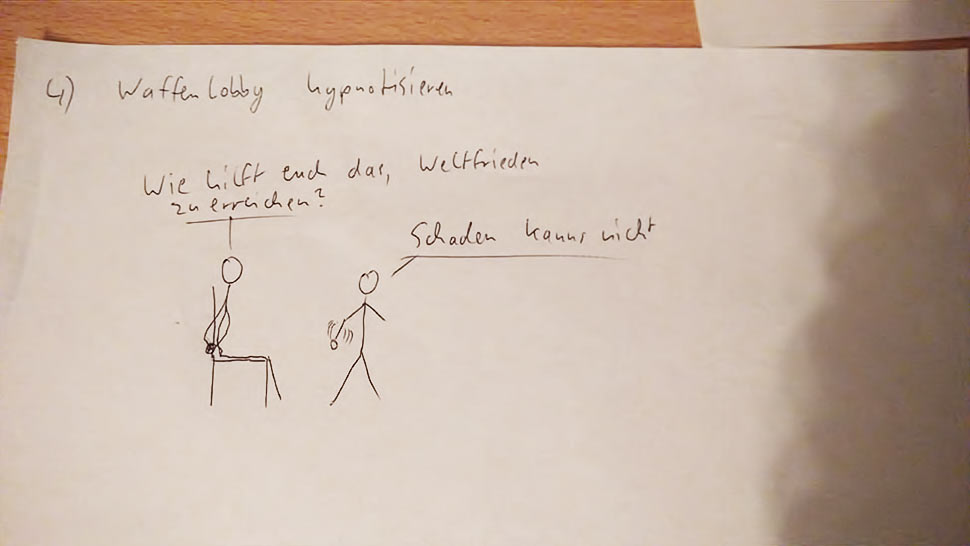 4) Waffenlobby hypnotisieren
Wie hilft euch das, Weltfrieden
zu erreichen?
Schaden kanns nicht